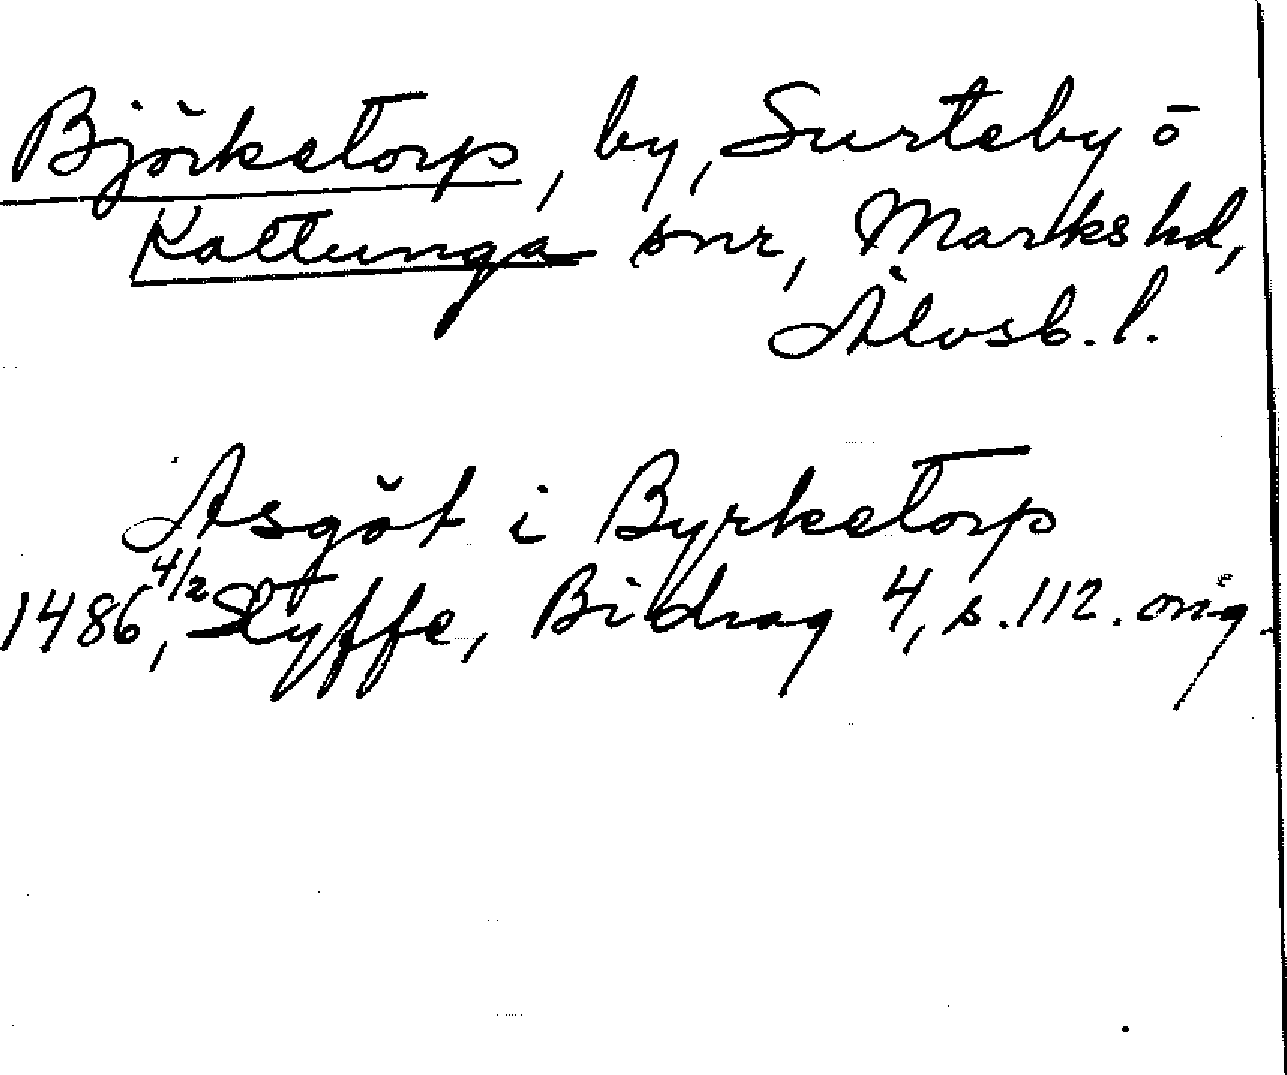 Björketorp, by, Surteby o
Kattunga snr, Marks hd,
Älvsb. l.
Asgöt i Byrketorp
1486 4/2, Styffe, Bidrag 4, s. 112. orig.